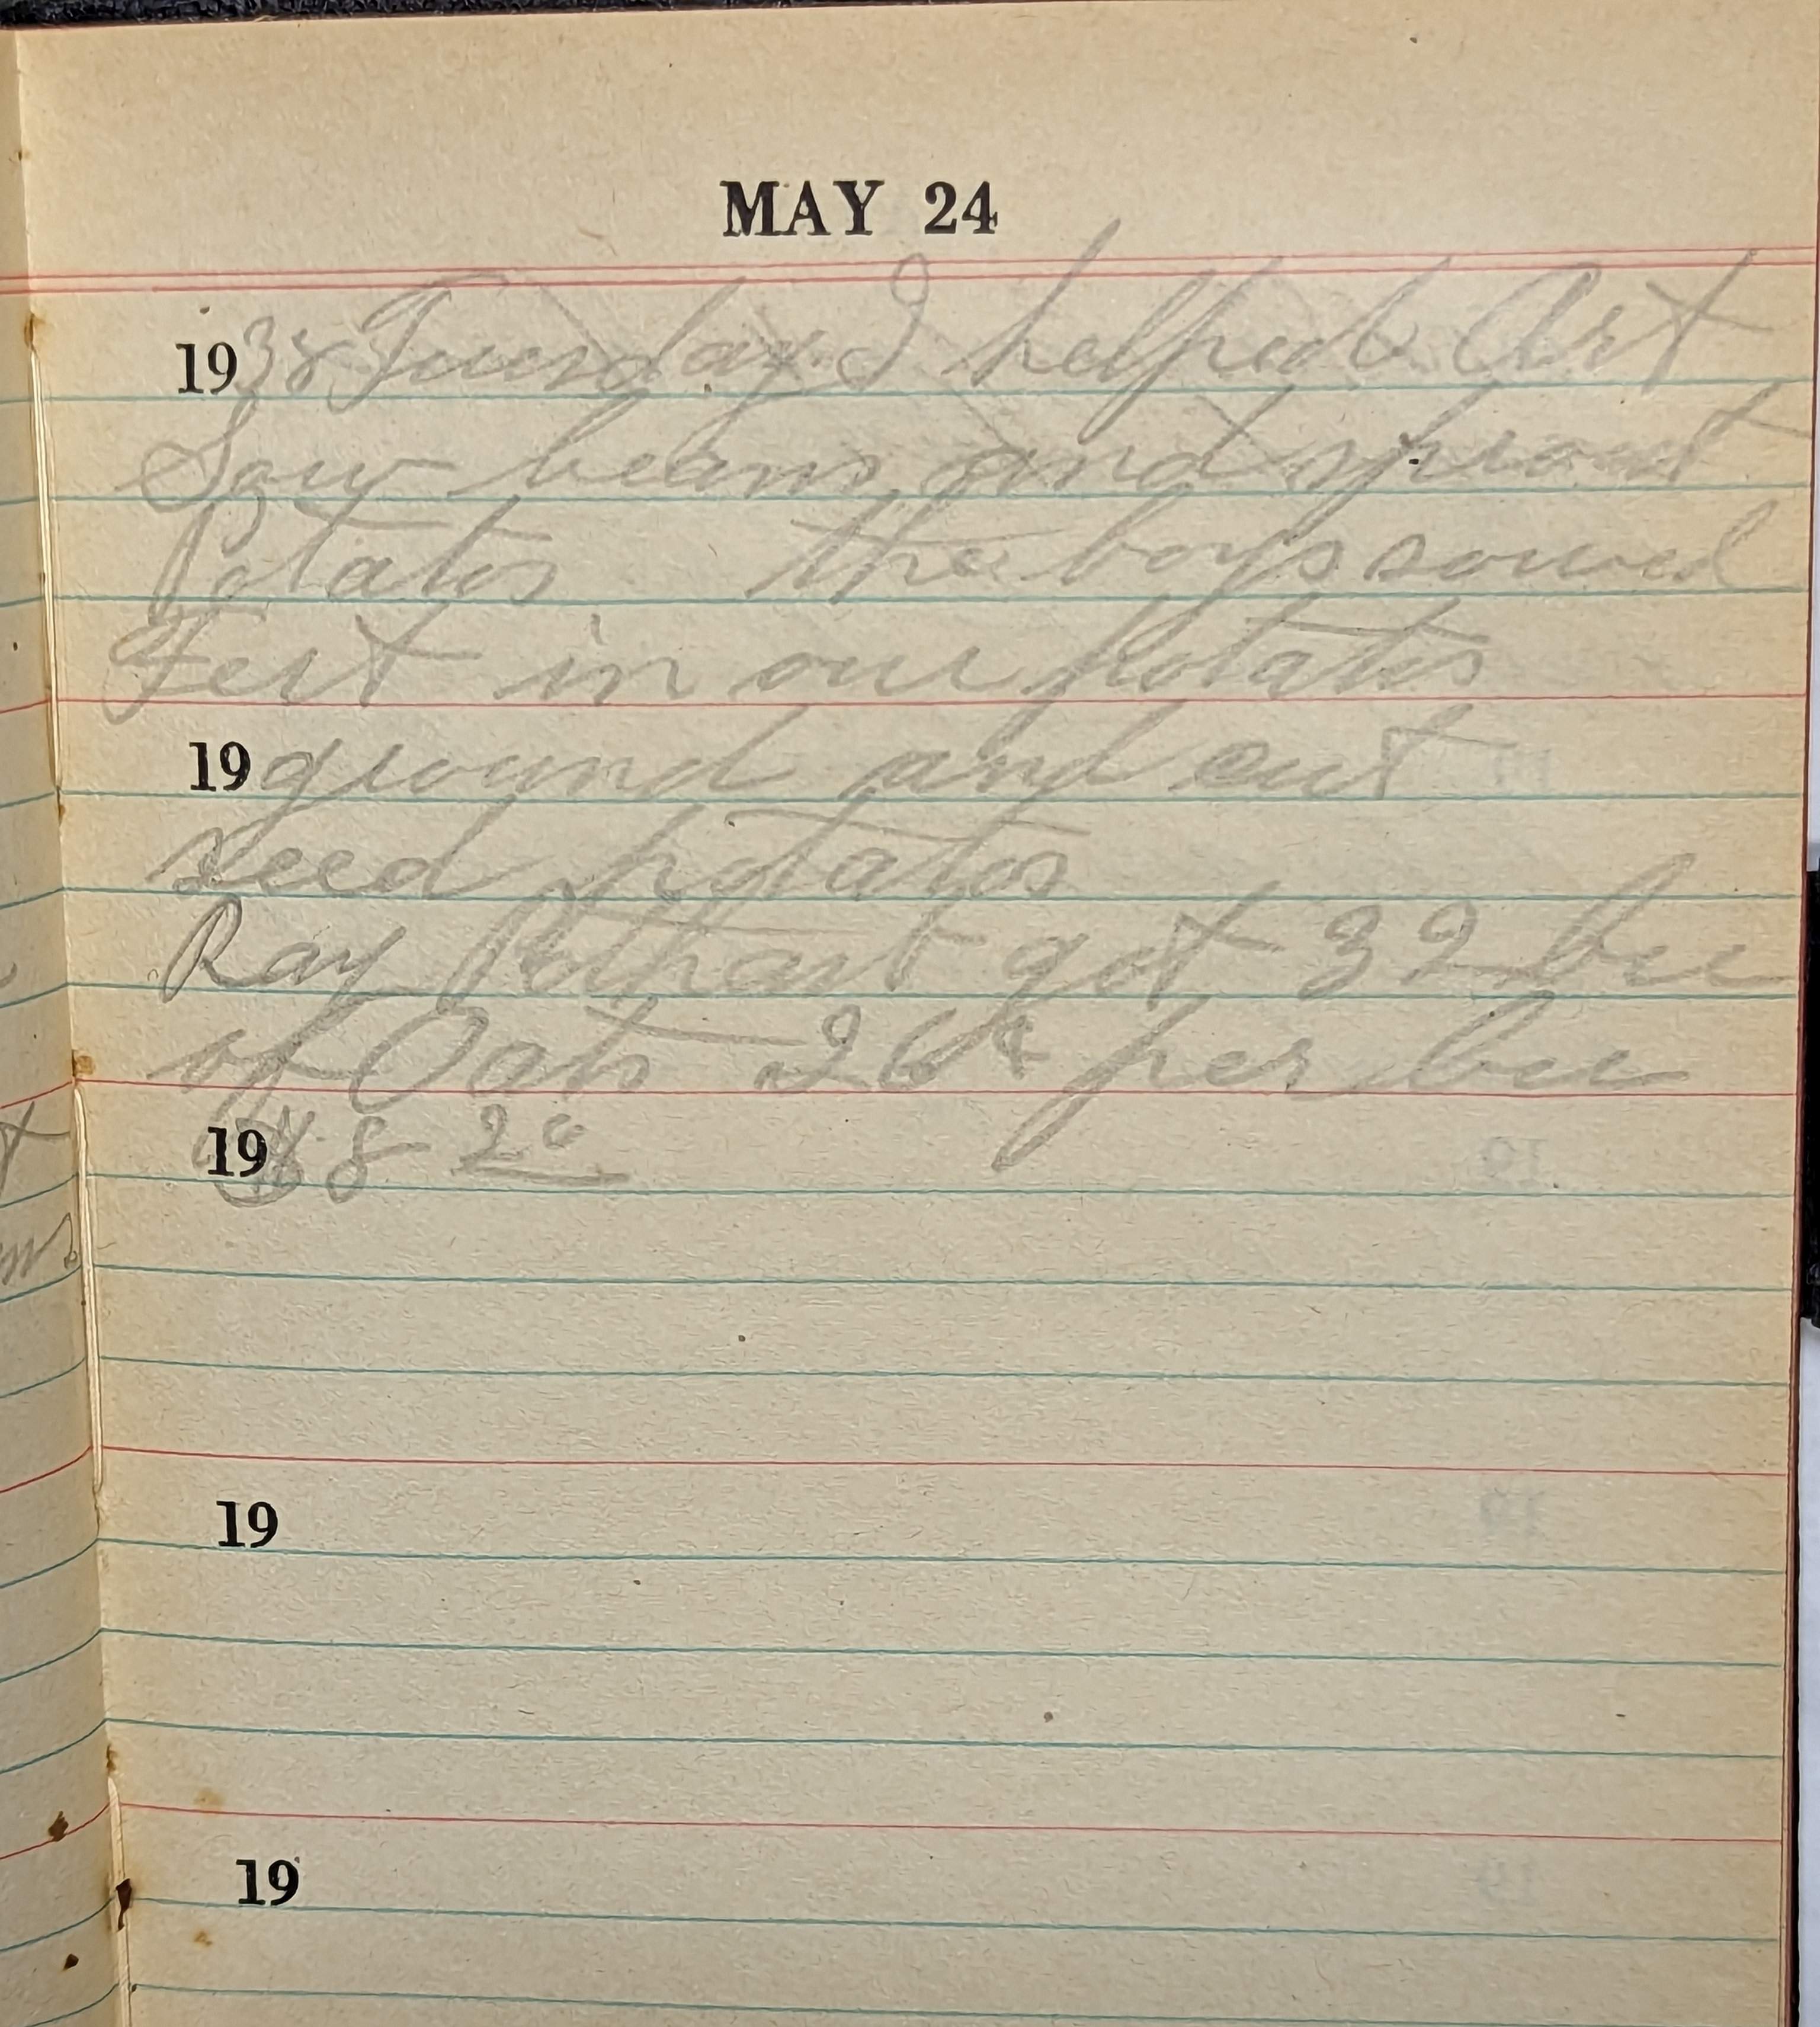 MAY 24
1938 Tuesday. I helped Art
Sow beans and sprout
Potatos the boys sowed
Fert in our potatos
19 ground and cut
seed potatos
Ray Pothast got 32 bu
of Oats 26¢ per bu
19 $8 20
19
19